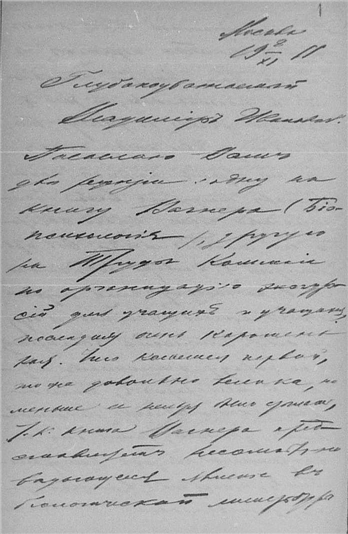 1
Москва
19 2/XI 11
Глубокоуважаемый
Владимiръ Ивановичъ.
Посылаю Вамъ
две рецензiи: одну на
книгу Вагнера (Бiо-
психологiя), другую
на Труды Комиссiи
по организацiи экскур-
сiй для учащихъ и учащихся,
последняя очень коротень
кая. Что касается первой,
то же довольно велика, но
меньше я не могъ
т. к. книга Вагнера пред-
ставляетъ несомненно
выдающееся явленiе въ
бiологической литературе